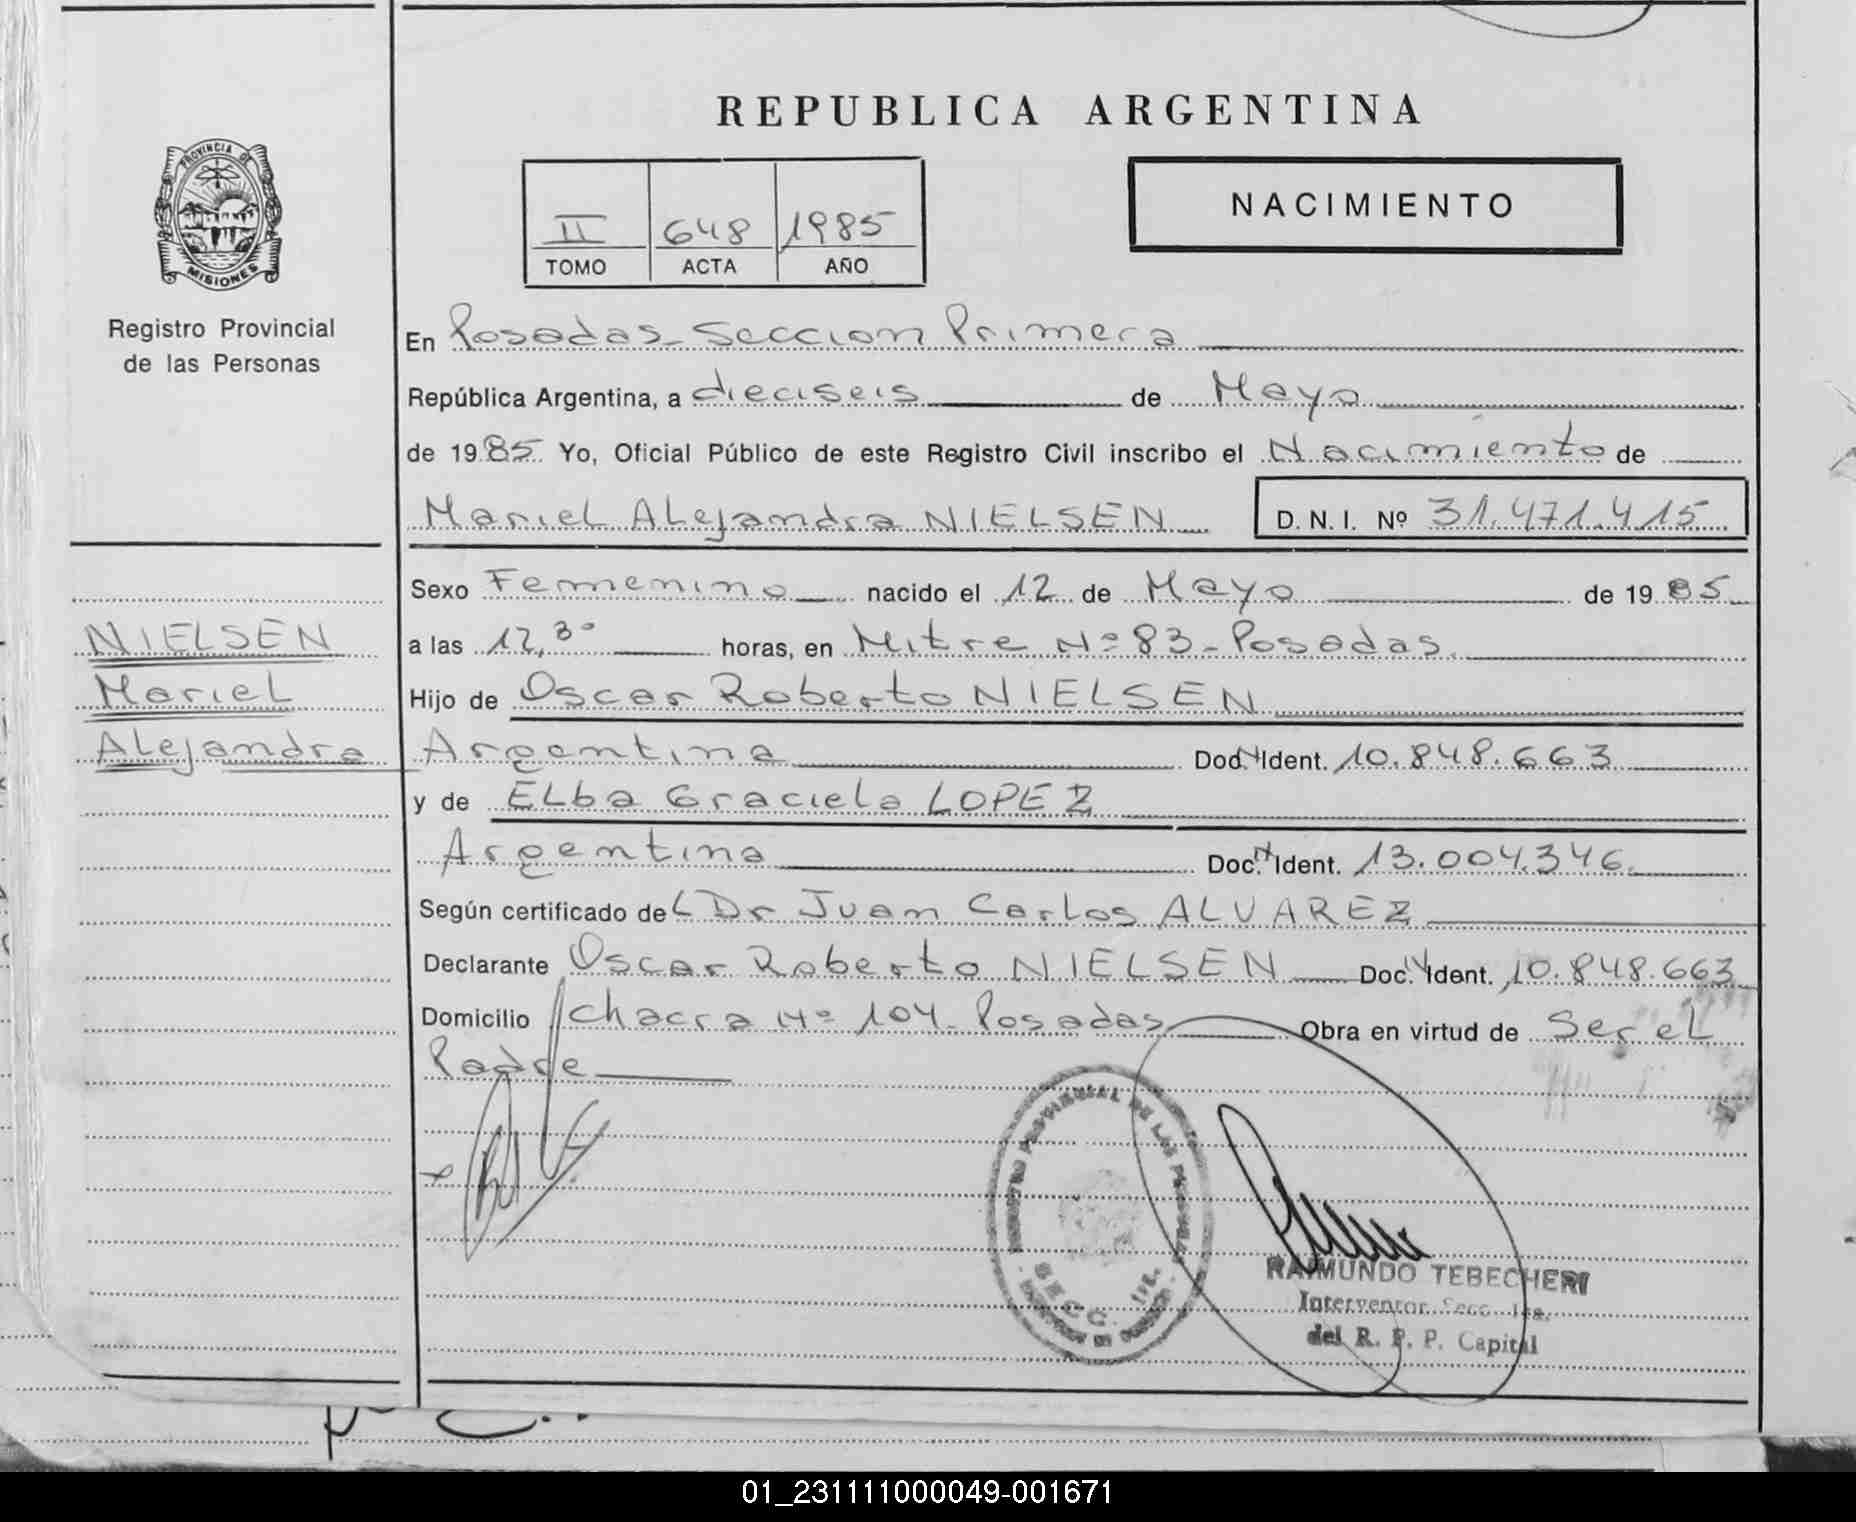 REPUBLICA ARGENTINA
PROVINCIA DE
MISIONES
Registro Provincial
de las Personas
II 648 1985
TOMO ACTA AÑO
NACIMIENTO
En Posadas - Seccion Primera
República Argentina, a dieciseis de Mayo
de 1985 Yo, Oficial Público de este Registro Civil inscribo el Nacimiento de
Mariel Alejandra NIELSEN D.N.I. Nº 31.471.415
Sexo Femenino nacido el 12 de Mayo de 1985
a las 12,30 horas, en Mitre Nº 83 - Posadas.
Hijo de Oscar Roberto NIELSEN
Argentina Doc. N Ident. 10.848.663
y de Elba Graciela LOPEZ
Argentina Doc. N Ident. 13.004.346.
Según certificado del Dr Juan Carlos ALVAREZ
Declarante Oscar Roberto NIELSEN Doc. N Ident. 10.848.663
Domicilio Chacra Nº 104 - Posadas Obra en virtud de Ser el
Padre
NIELSEN
Mariel
Alejandra
REGISTRO PROVINCIAL DE LAS PERSONAS
SECC. 1ra.
RAIMUNDO TEBECHERI
Interventor Secc. 1ra.
del R. P. P. Capital
01_231111000049-001671